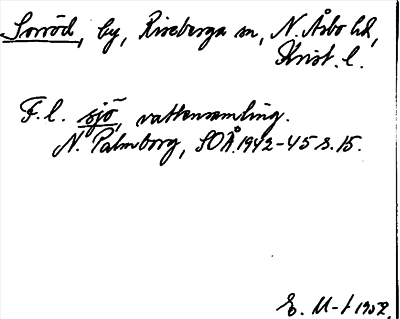 Sorröd, by, Riseberga sn, N. Åsbo hd,
Krist. l.
F. l. sjö, vattensamling.
N. Palmborg, SOÅ. 1942-45 s. 15.
E. M-t 1952.